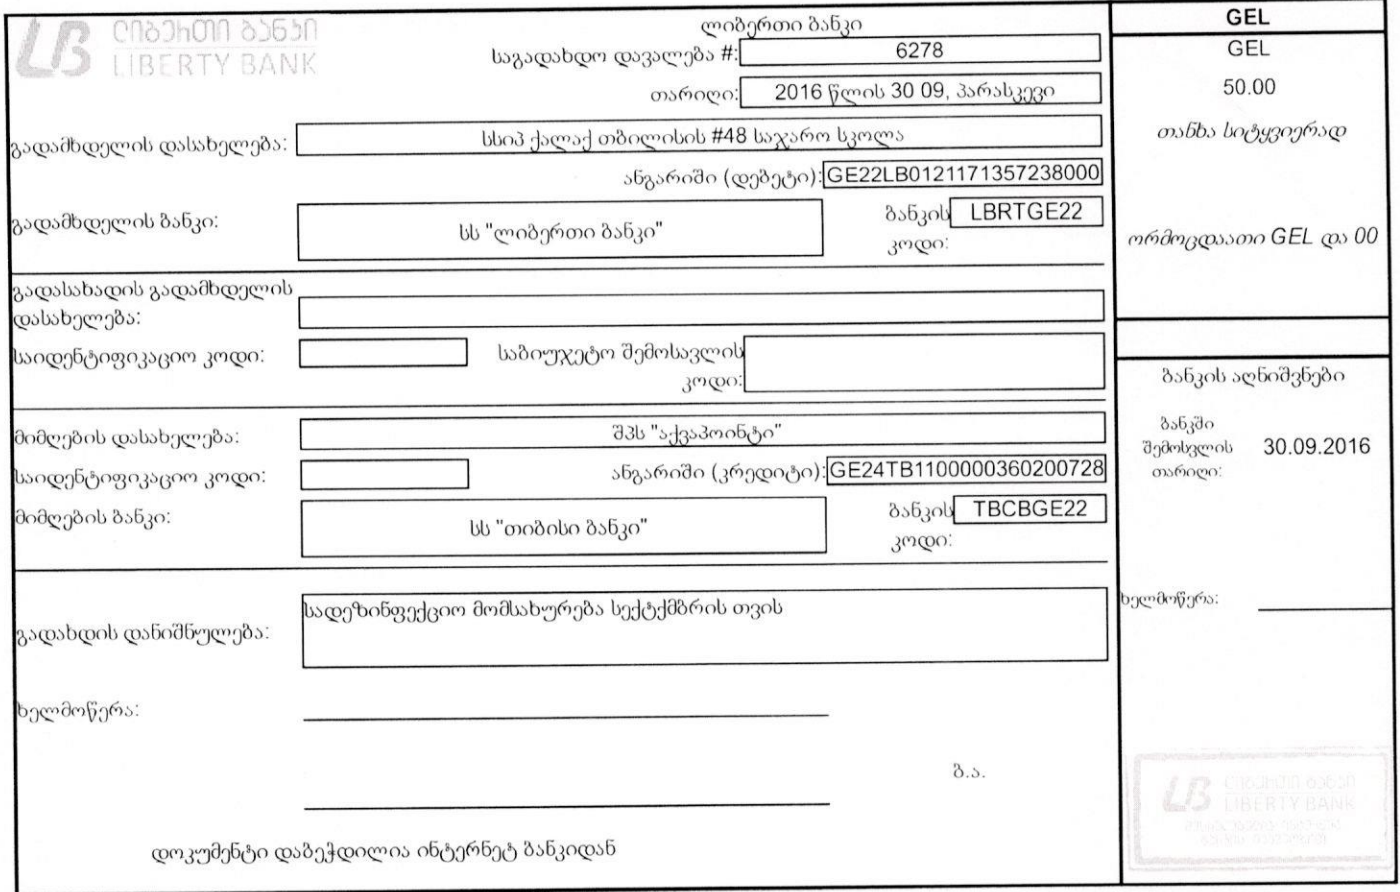 ლიბერთი ბანკი
LB LIBERTY BANK
ლიბერთი ბანკი
საგადახდო დავალება #: 6278
თარიღი: 2016 წლის 30 09, პარასკევი
გადამხდელის დასახელება: სსიპ ქალაქ თბილისის #48 საჯარო სკოლა
ანგარიში (დებეტი): GE22LB0121171357238000
გადამხდელის ბანკი: სს "ლიბერთი ბანკი" ბანკის კოდი: LBRTGE22
გადასახადის გადამხდელის
დასახელება:
საიდენტიფიკაციო კოდი: საბიუჯეტო შემოსავლის
კოდი:
მიმღების დასახელება: შპს "აქვაპოინტი"
საიდენტიფიკაციო კოდი: ანგარიში (კრედიტი): GE24TB1100000360200728
მიმღების ბანკი: სს "თიბისი ბანკი" ბანკის კოდი: TBCBGE22
გადახდის დანიშნულება: სადეზინფექციო მომსახურება სექტქმბრის თვის
ხელმოწერა:
ბ.ა.
დოკუმენტი დაბეჭდილია ინტერნეტ ბანკიდან
GEL
GEL
50.00
თანხა სიტყვიერად
ორმოცდაათი GEL და 00
ბანკის აღნიშვნები
ბანკში
შემოსვლის
თარიღი: 30.09.2016
ხელმოწერა:
LB ლიბერთი ბანკი
LIBERTY BANK